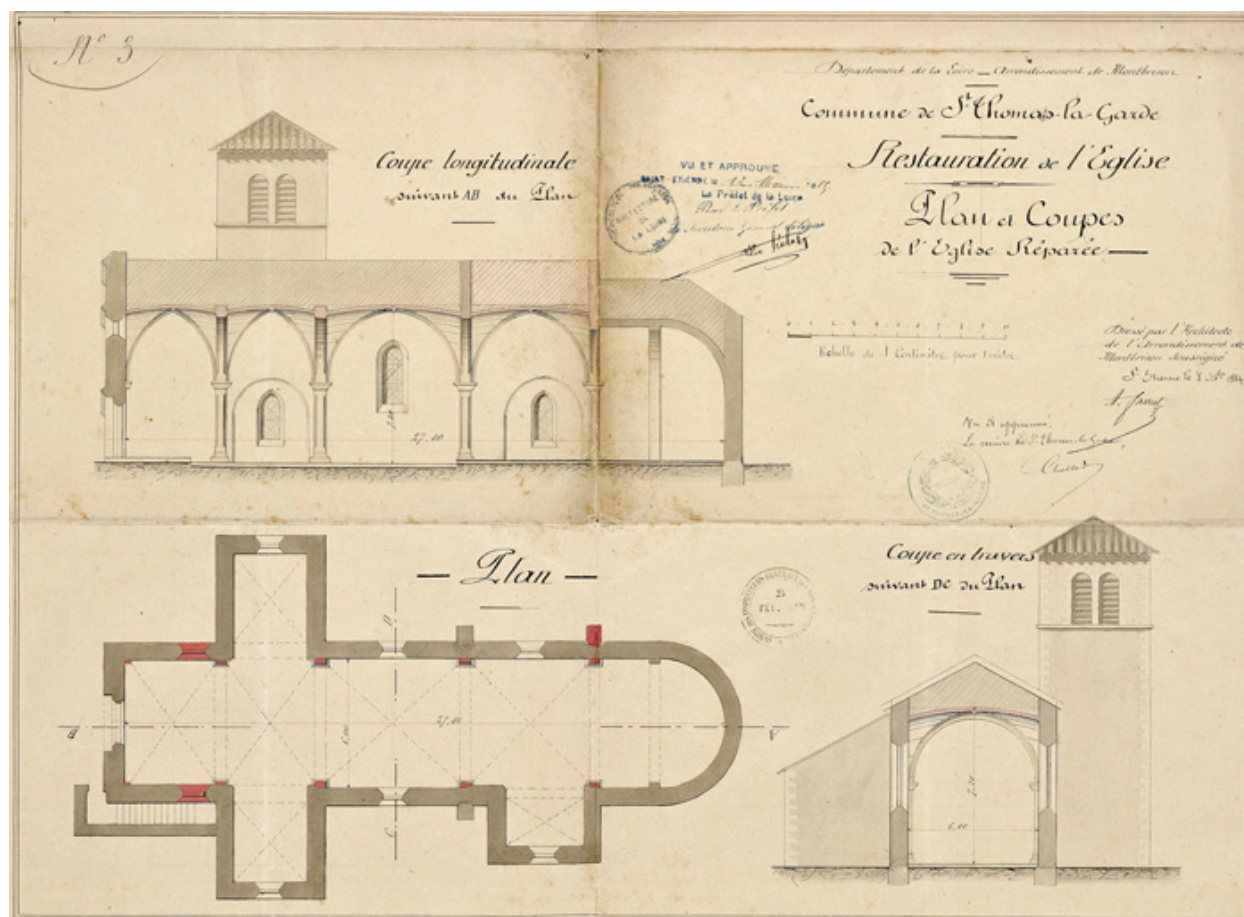 N° 3
Département de la Loire — Arrondissement de Montbrison
Commune de St Thomas-la-Garde
Restauration de l'Eglise
Plan et Coupes
de l'Eglise Réparée
Coupe longitudinale
suivant AB du Plan
VU ET APPROUVÉ
SAINT-ETIENNE le
Le Préfet de la Loire
Pour le Préfet
Le Secrétaire Général délégué
Echelle de 1 Centimètre pour mètre
Dressé par l'Architecte
de l'Arrondissement de
Montbrison soussigné
St Etienne le 8
Vu et approuvé
Le maire de St Thomas-la-Garde,
27.10
Plan
Coupe en travers
suivant DC du Plan
25
D
B
27.10
6.00
A
C
7.20
6.00